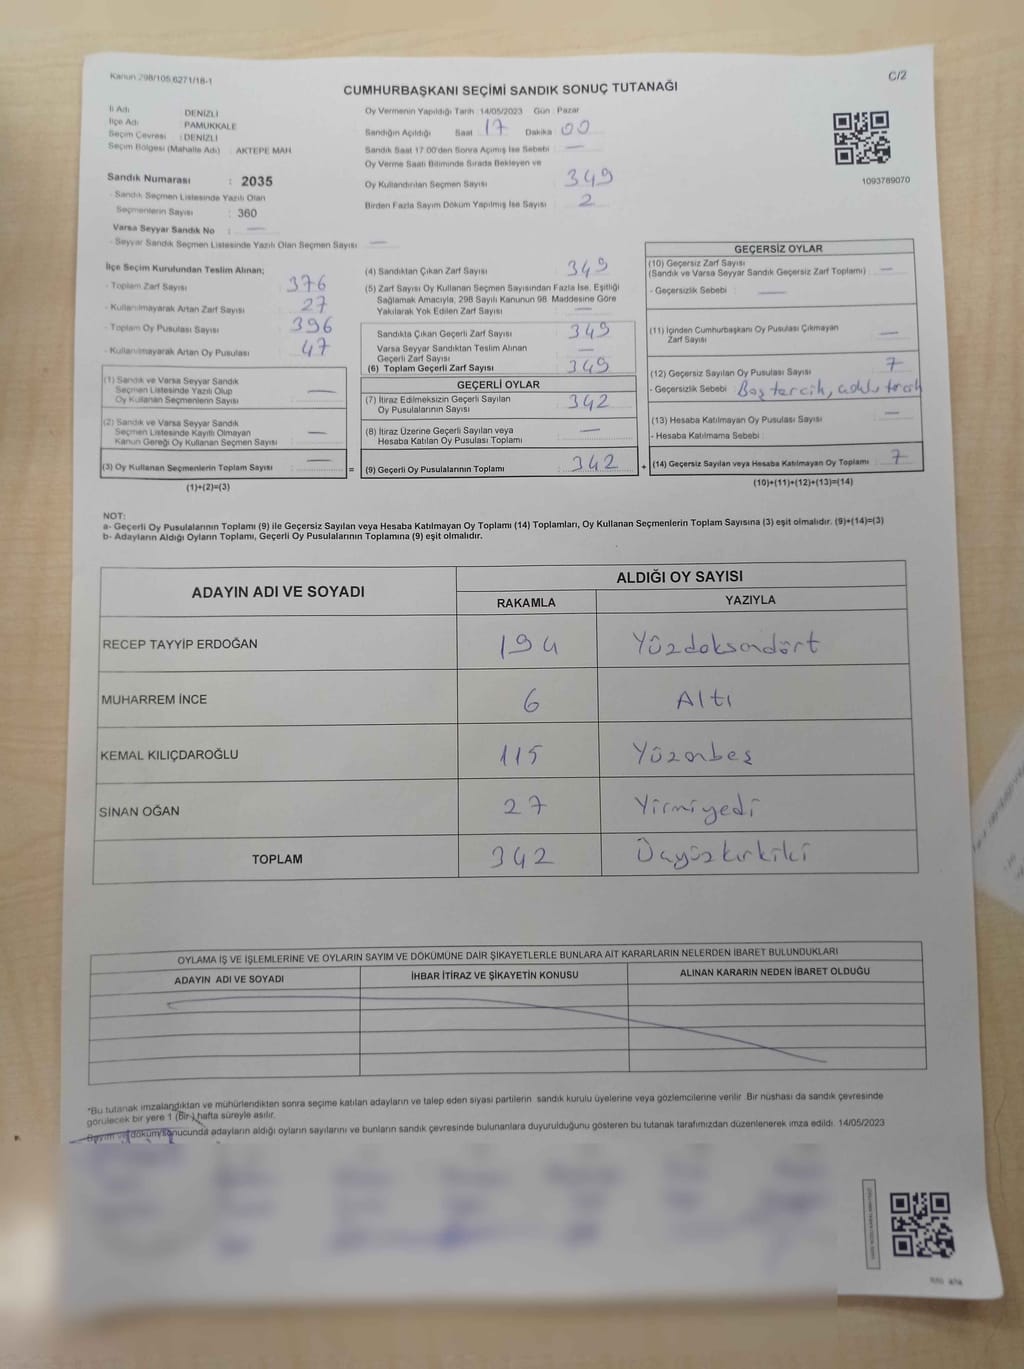 Kanun 298/105,6271/18-1
C/2
CUMHURBAŞKANI SEÇİMİ SANDIK SONUÇ TUTANAĞI
İl Adı DENİZLİ
İlçe Adı PAMUKKALE
Seçim Çevresi : DENİZLİ
Seçim Bölgesi (Mahalle Adı) : AKTEPE MAH
Sandık Numarası : 2035
- Sandık Seçmen Listesinde Yazılı Olan
Seçmenlerin Sayısı : 360
Varsa Seyyar Sandık No : —
- Seyyar Sandık Seçmen Listesinde Yazılı Olan Seçmen Sayısı —
Oy Vermenin Yapıldığı Tarih : 14/05/2023 Gün : Pazar
Sandığın Açıldığı Saat 17 Dakika 00
Sandık Saat 17.00'den Sonra Açılmış İse Sebebi —
Oy Verme Saati Bitiminde Sırada Bekleyen ve
Oy Kullandırılan Seçmen Sayısı 349
Birden Fazla Sayım Döküm Yapılmış İse Sayısı 2
1093789070
İlçe Seçim Kurulundan Teslim Alınan;
- Toplam Zarf Sayısı 376
- Kullanılmayarak Artan Zarf Sayısı 27
- Toplam Oy Pusulası Sayısı 396
- Kullanılmayarak Artan Oy Pusulası 47
(1) Sandık ve Varsa Seyyar Sandık
Seçmen Listesinde Yazılı Olup
Oy Kullanan Seçmenlerin Sayısı —
(2) Sandık ve Varsa Seyyar Sandık
Seçmen Listesinde Kayıtlı Olmayan
Kanun Gereği Oy Kullanan Seçmen Sayısı —
(3) Oy Kullanan Seçmenlerin Toplam Sayısı —
(1)+(2)=(3)
=
(4) Sandıktan Çıkan Zarf Sayısı 349
(5) Zarf Sayısı Oy Kullanan Seçmen Sayısından Fazla İse, Eşitliği
Sağlamak Amacıyla, 298 Sayılı Kanunun 98. Maddesine Göre
Yakılarak Yok Edilen Zarf Sayısı —
Sandıkta Çıkan Geçerli Zarf Sayısı 349
Varsa Seyyar Sandıktan Teslim Alınan
Geçerli Zarf Sayısı —
(6) Toplam Geçerli Zarf Sayısı 349
GEÇERLİ OYLAR
(7) İtiraz Edilmeksizin Geçerli Sayılan
Oy Pusulalarının Sayısı 342
(8) İtiraz Üzerine Geçerli Sayılan veya
Hesaba Katılan Oy Pusulası Toplamı —
(9) Geçerli Oy Pusulalarının Toplamı 342
+
GEÇERSİZ OYLAR
(10) Geçersiz Zarf Sayısı
(Sandık ve Varsa Seyyar Sandık Geçersiz Zarf Toplamı) —
- Geçersizlik Sebebi : —
(11) İçinden Cumhurbaşkanı Oy Pusulası Çıkmayan
Zarf Sayısı —
(12) Geçersiz Sayılan Oy Pusulası Sayısı 7
- Geçersizlik Sebebi : Boş tercih,
(13) Hesaba Katılmayan Oy Pusulası Sayısı —
- Hesaba Katılmama Sebebi :
(14) Geçersiz Sayılan veya Hesaba Katılmayan Oy Toplamı 7
(10)+(11)+(12)+(13)=(14)
NOT:
a- Geçerli Oy Pusulalarının Toplamı (9) ile Geçersiz Sayılan veya Hesaba Katılmayan Oy Toplamı (14) Toplamları, Oy Kullanan Seçmenlerin Toplam Sayısına (3) eşit olmalıdır. (9)+(14)=(3)
b- Adayların Aldığı Oyların Toplamı, Geçerli Oy Pusulalarının Toplamına (9) eşit olmalıdır.
ADAYIN ADI VE SOYADI
ALDIĞI OY SAYISI
RAKAMLA YAZIYLA
RECEP TAYYİP ERDOĞAN 194 Yüzdoksandört
MUHARREM İNCE 6 Altı
KEMAL KILIÇDAROĞLU 115 Yüzonbeş
SİNAN OĞAN 27 Yirmiyedi
TOPLAM 342 Üçyüzkırkiki
OYLAMA İŞ VE İŞLEMLERİNE VE OYLARIN SAYIM VE DÖKÜMÜNE DAİR ŞİKAYETLERLE BUNLARA AİT KARARLARIN NELERDEN İBARET BULUNDUKLARI
ADAYIN ADI VE SOYADI İHBAR İTİRAZ VE ŞİKAYETİN KONUSU ALINAN KARARIN NEDEN İBARET OLDUĞU
*Bu tutanak imzalandıktan ve mühürlendikten sonra seçime katılan adayların ve talep eden siyasi partilerin sandık kurulu üyelerine veya gözlemcilerine verilir. Bir nüshası da sandık çevresinde
görülecek bir yere 1 (Bir) hafta süreyle asılır.
Sayım ve döküm sonucunda adayların aldığı oyların sayılarını ve bunların sandık çevresinde bulunanlara duyurulduğunu gösteren bu tutanak tarafımızdan düzenlenerek imza edildi. 14/05/2023